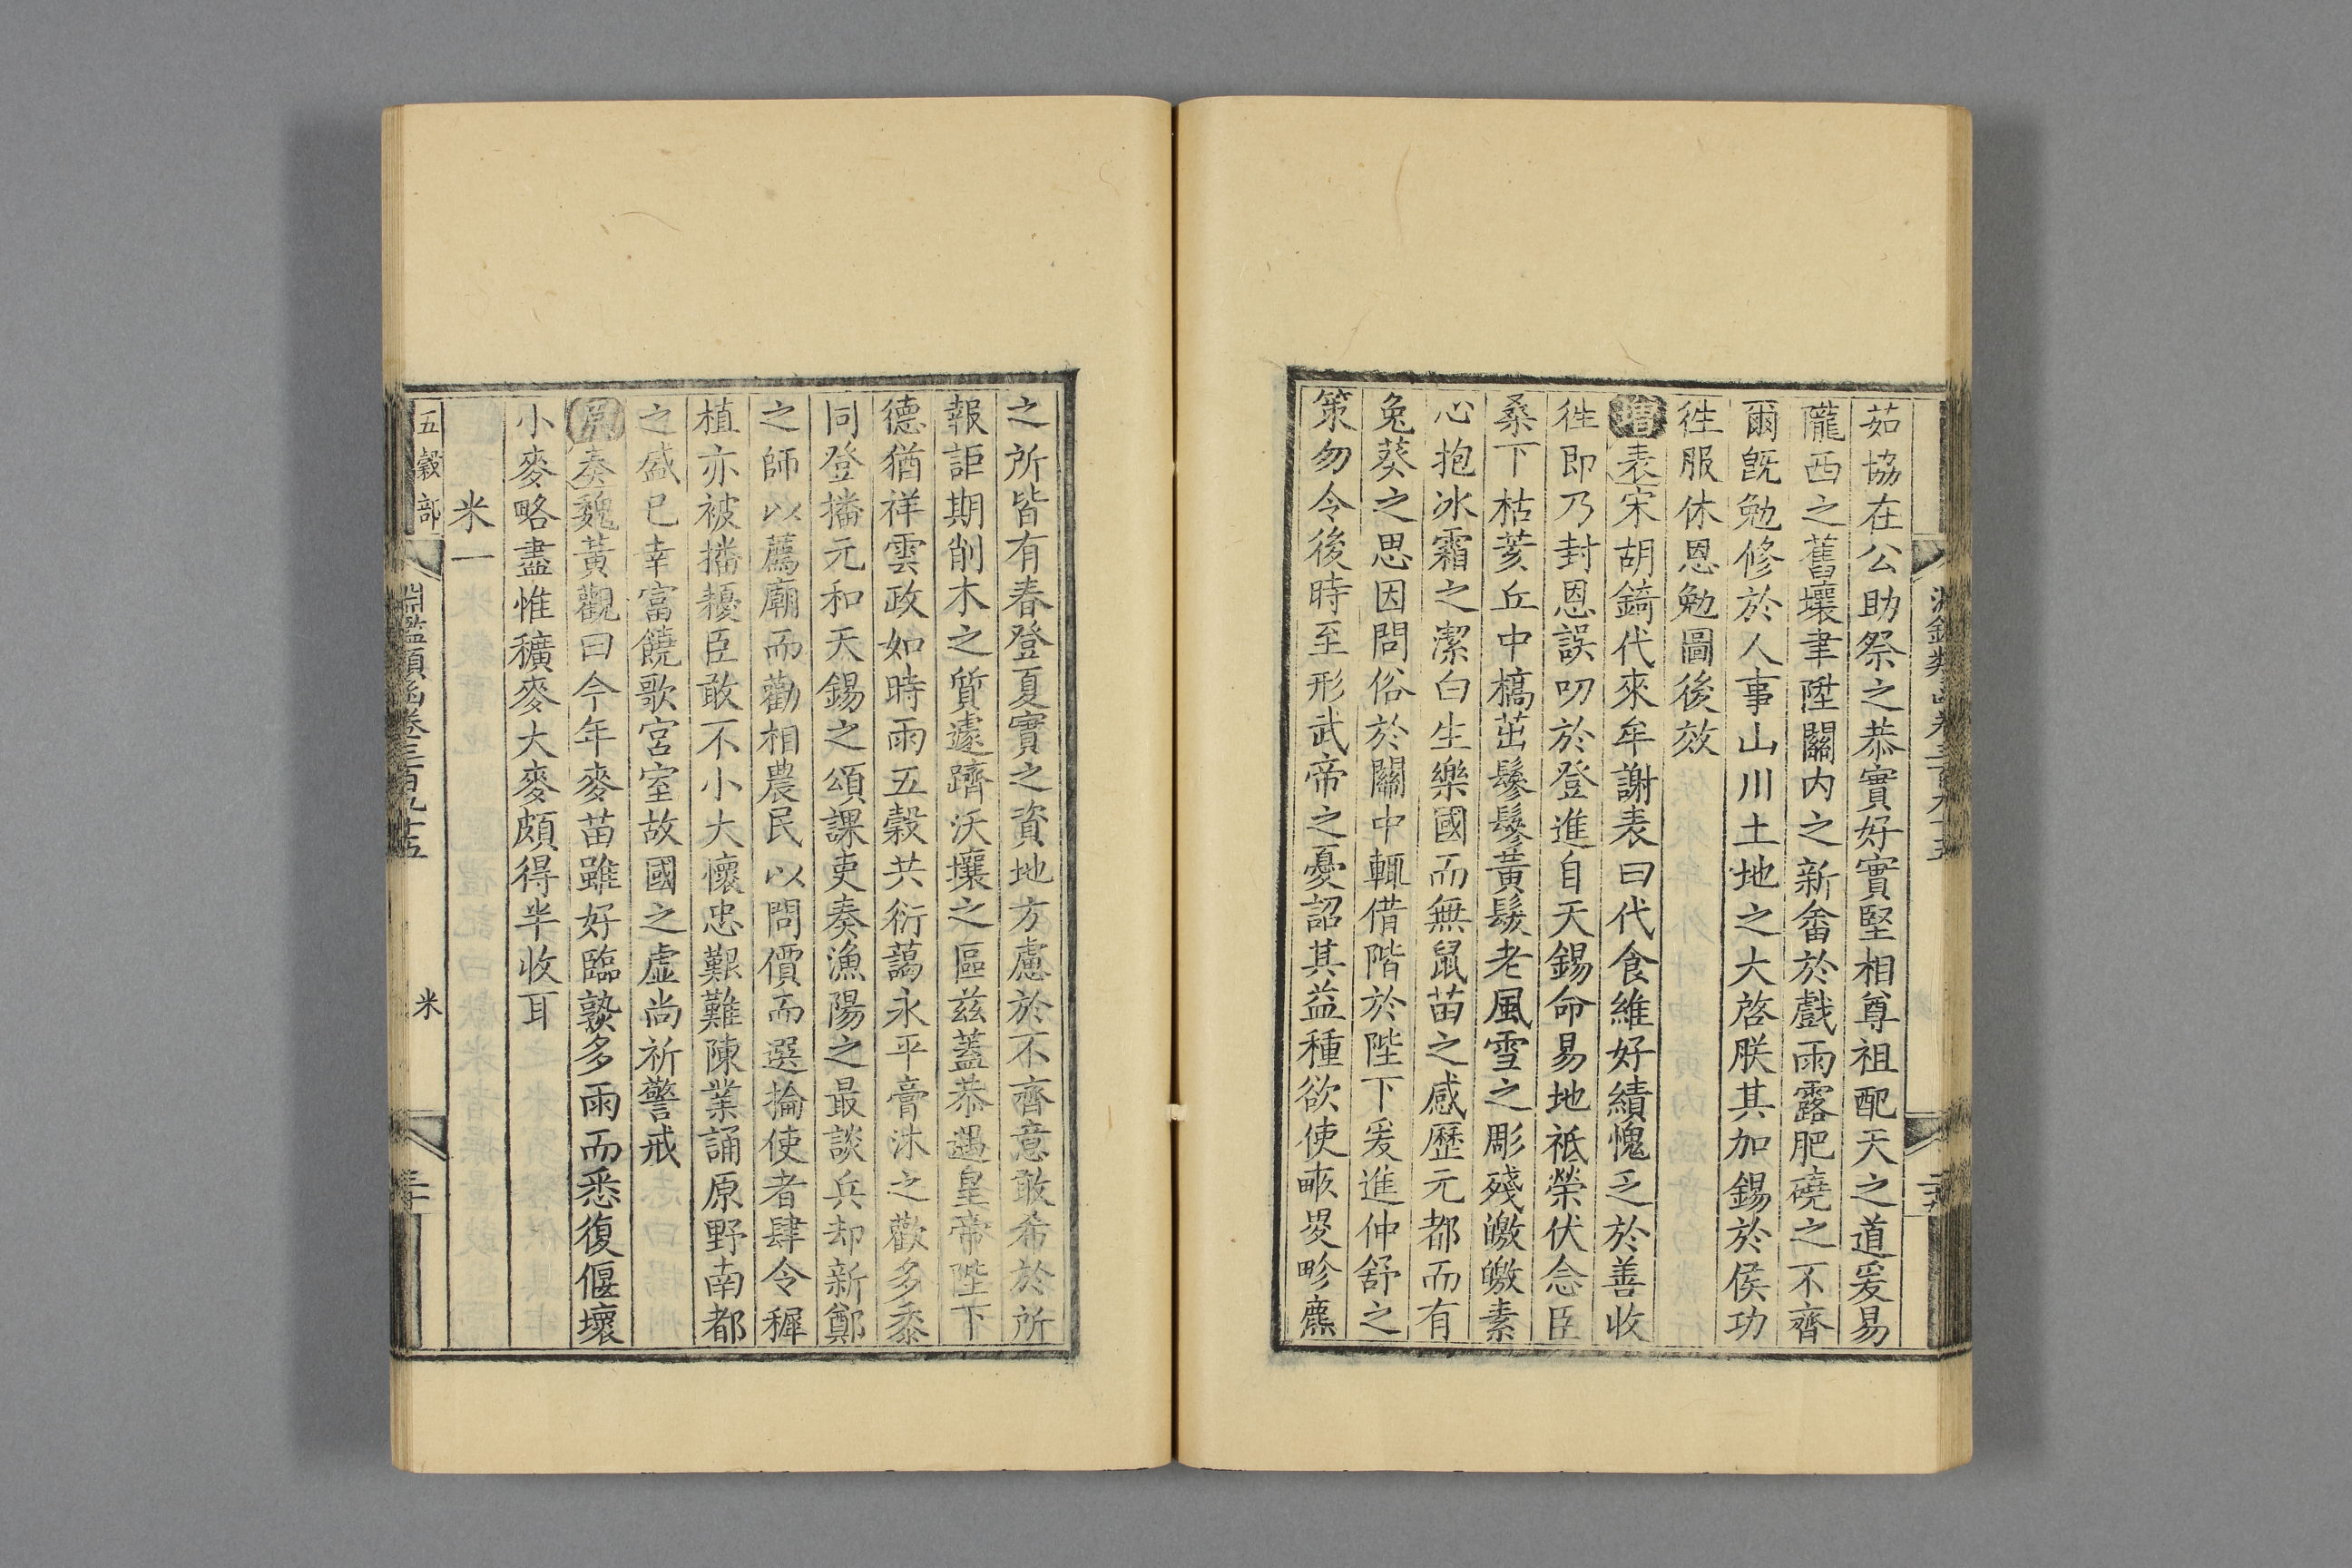 茹協在公助祭之恭實好實堅相尊祖配天之道爰易
隴西之舊壤聿陞關内之新畬於戲雨露肥磽之不齊
爾旣勉修於人事山川土地之大啓朕其加錫於侯功
徃服休恩勉圖後效
增表宋胡錡代來牟謝表曰代食維好績愧乏於善收
徃即乃封恩誤叨於登進自天錫命易地祗榮伏念臣
桑下枯荄丘中槁茁鬖鬖黃髮老風雪之彫殘皦皦素
心抱冰霜之潔白生樂國而無鼠苗之感歷元都而有
兔葵之思因問俗於關中輒借階於陛下爰進仲舒之
策勿令後時至形武帝之憂詔其益種欲使畞畟畛麃
之所皆有春登夏實之資地方慮於不齊意敢希於所
報詎期削木之質遽躋沃壤之區兹蓋恭遇皇帝陛下
德猶祥雲政如時雨五穀共衍藹永平膏沐之歡多黍
同登播元和天錫之頌課吏奏漁陽之最談兵却新鄭
之師以薦廟而勸相農民以問價而選掄使者肆令穉
植亦被播耰臣敢不小大懷忠艱難陳業誦原野南都
之盛已幸富饒歌宮室故國之虛尚祈警戒
原奏魏黃觀曰今年麥苗雖好臨孰多雨而悉復偃壞
小麥略盡惟穬麥大麥頗得半收耳
米一
五穀部
淵鑑類函卷三百九十五
米